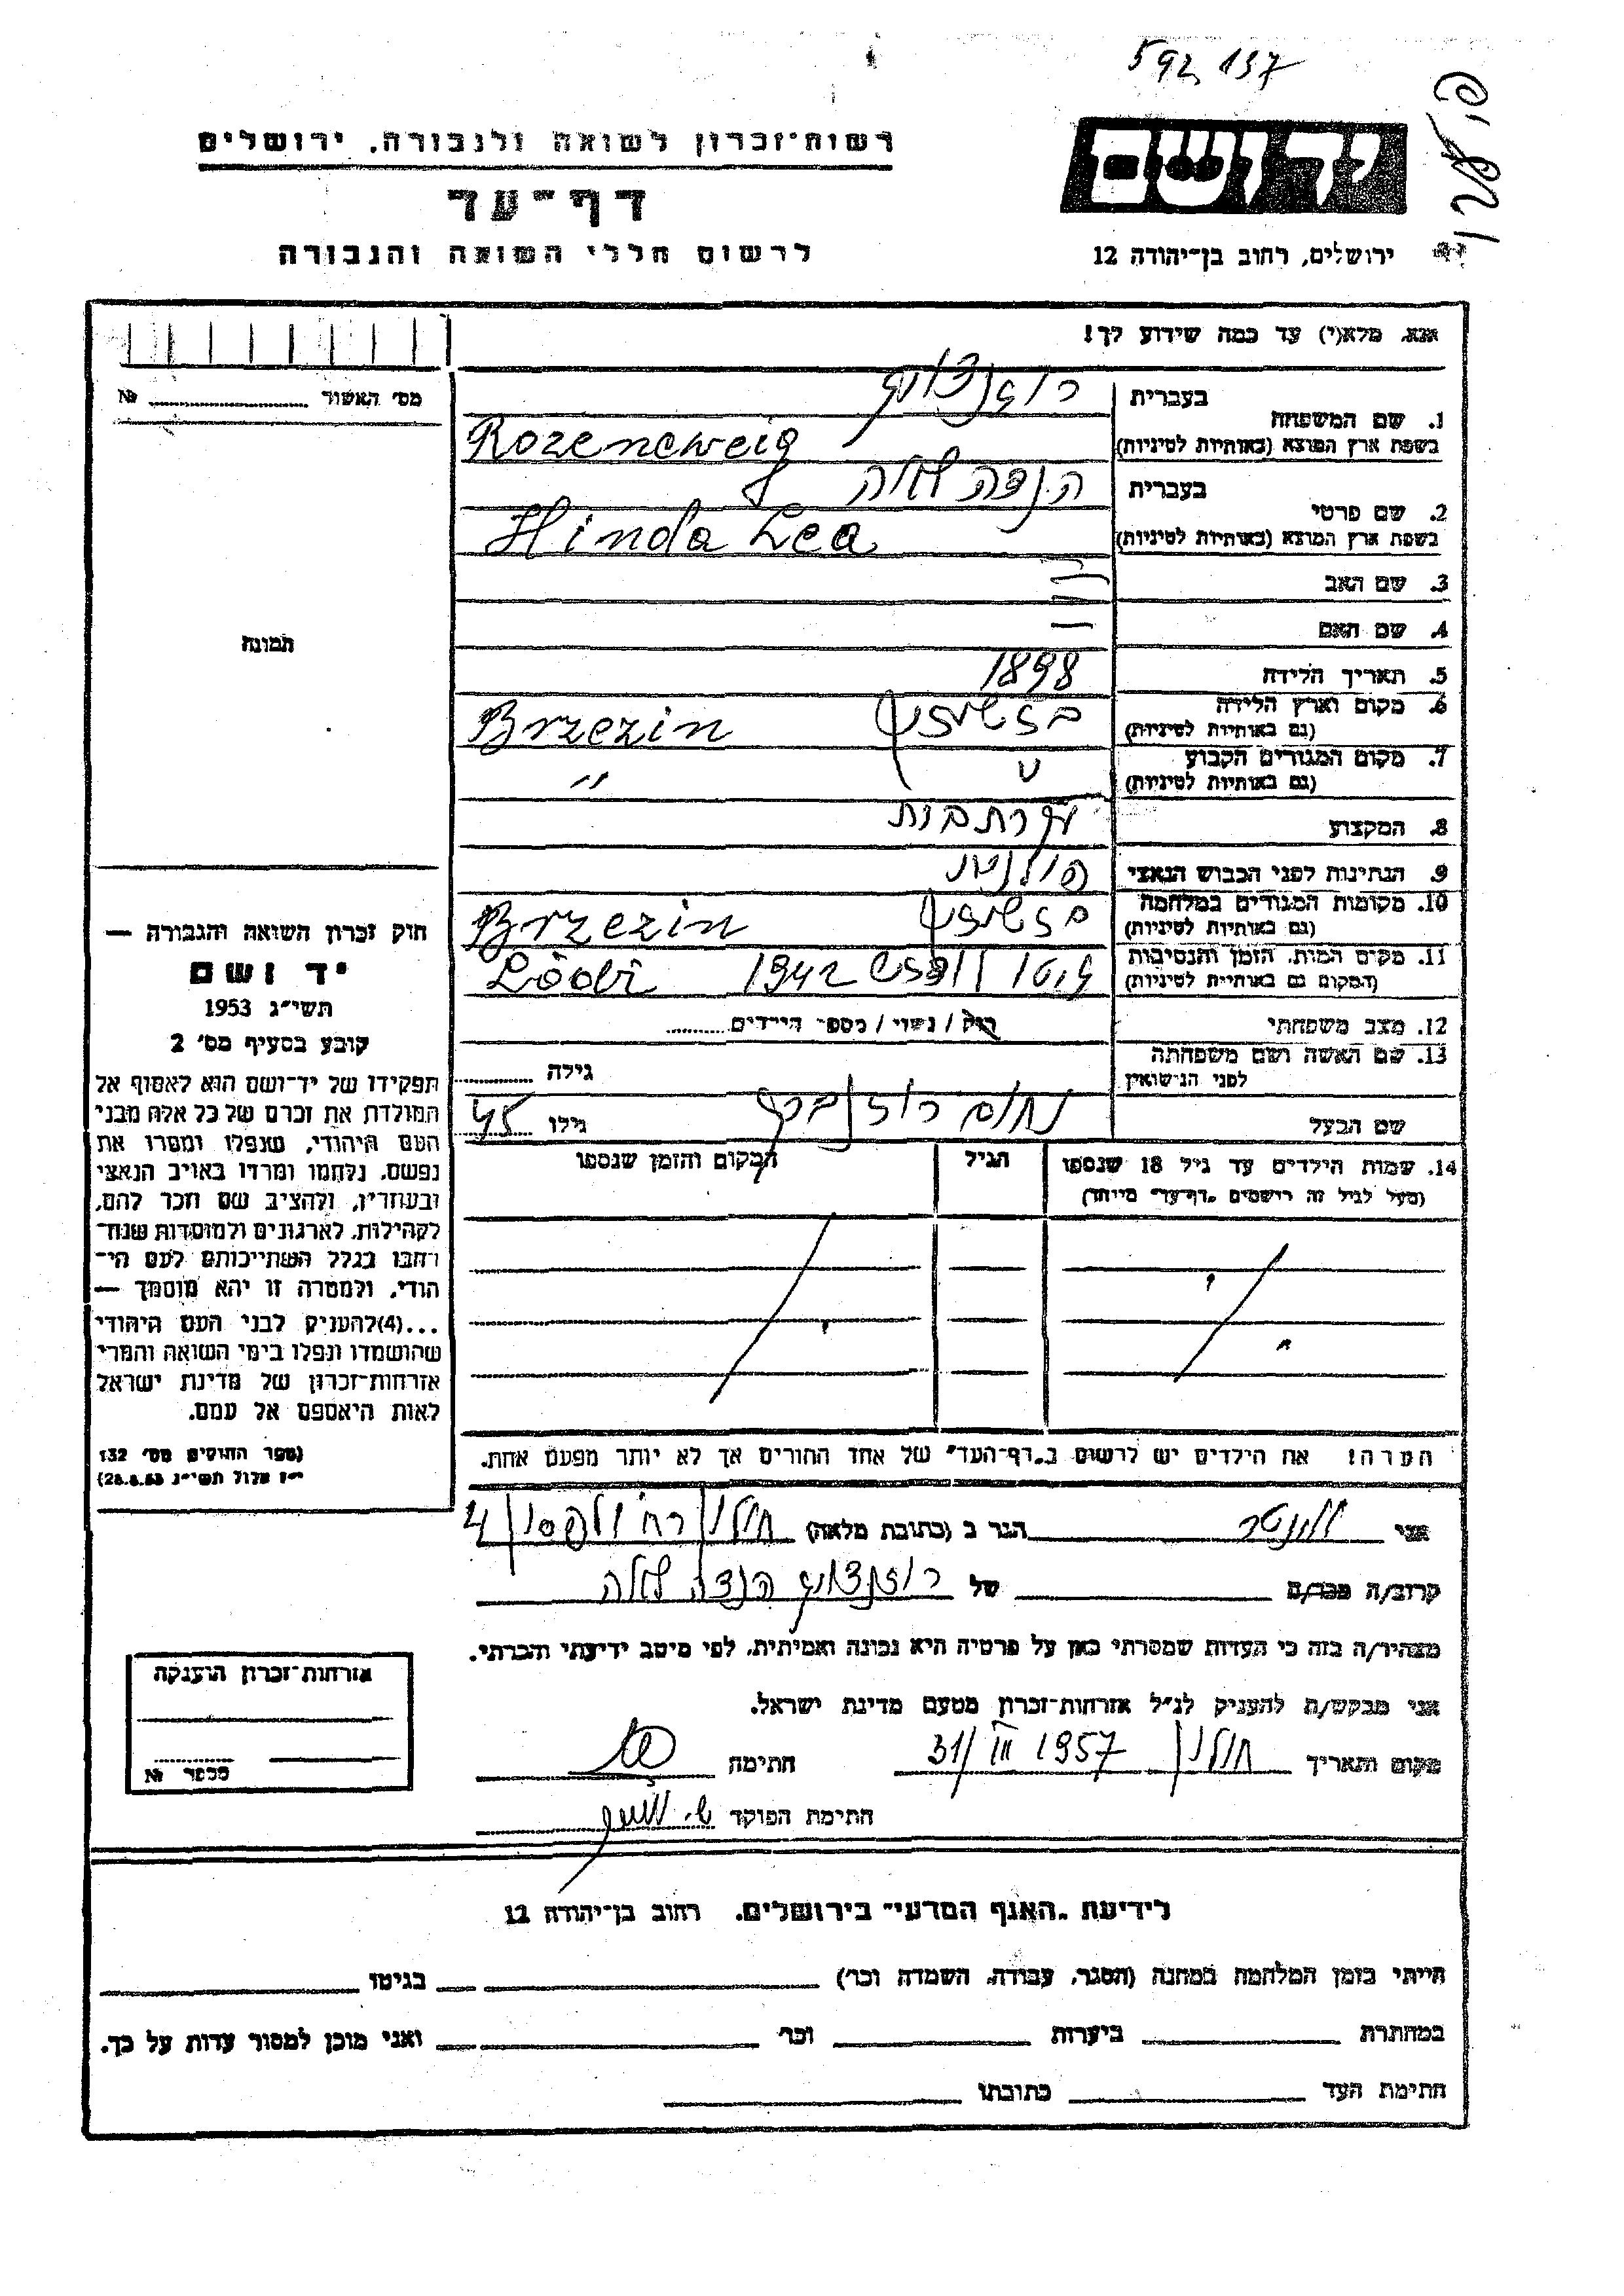 592 137
רשות־זכרון לשואה ולגבורה, ירושלים
דף־עד
לרשום חללי השואה והגבורה
יד ושם
ירושלים, רחוב בן־יהודה 12
אנא, מלא(י) עד כמה שידוע לך!
מס' האשור № ........
1. שם המשפחה
בעברית
בשפת ארץ המוצא (באותיות לטיניות)
Rozencweig
2. שם פרטי
בעברית הנדה לאה
בשפת ארץ המוצא (באותיות לטיניות)
Hinda Lea
3. שם האב —
4. שם האם —
תמונה
5. תאריך הלידה 1898
6. מקום וארץ הלידה
(גם באותיות לטיניות)
Brzezin
7. מקום המגורים הקבוע
(גם באותיות לטיניות)
"
8. המקצוע
9. הנתינות לפני הכבוש הנאצי פולנית
10. מקומות המגורים במלחמה
(גם באותיות לטיניות)
Brzezin
11. מקום המות, הזמן והנסיבות
(המקום גם באותיות לטיניות)
גיטו לודז' 1942
12. מצב משפחתי
רוק / נשוי / מספר הילדים ........
13. שם האשה ושם משפחתה
לפני הנישואין
גילה ........
שם הבעל נחום
גילו 45
14. שמות הילדים עד גיל 18 שנספו
(מעל לגיל זה רושמים „דף־עד" מיוחד)
הגיל
המקום והזמן שנספו
הערה! את הילדים יש לרשום ב„דף־העד" של אחד ההורים אך לא יותר מפעם אחת.
חוק זכרון השואה והגבורה —
יד ושם
תשי"ג 1953
קובע בסעיף מס' 2
תפקידו של יד־ושם הוא לאסוף אל
המולדת את זכרם של כל אלה מבני
העם היהודי, שנפלו ומסרו את
נפשם, נלחמו ומרדו באויב הנאצי
ובעוזריו, ולהציב שם וזכר להם,
לקהילות, לארגונים ולמוסדות שנח־
רבו בגלל השתייכותם לעם הי־
הודי, ולמטרה זו יהא מוסמך —
...(4)להעניק לבני העם היהודי
שהושמדו ונפלו בימי השואה והמרי
אזרחות־זכרון של מדינת ישראל
לאות היאספם אל עמם.
(ספר החוקים מס' 132
י"ז אלול תשי"ג 28.8.53)
אני
הגר ב (כתובת מלאה) חולון רח'
קרוב/ה מכר/ם של רוזנצויג הנדה לאה
מצהיר/ה בזה כי העדות שמסרתי כאן על פרטיה היא נכונה ואמיתית, לפי מיטב ידיעתי והכרתי.
אני מבקש/ת להעניק לנ"ל אזרחות־זכרון מטעם מדינת ישראל.
מקום ותאריך חולון 31/III 1957 חתימה
חתימת הפוקד
אזרחות־זכרון הוענקה
מספר №
לידיעת „האגף המדעי" בירושלים, רחוב בן־יהודה 12
הייתי בזמן המלחמה במחנה (הסגר, עבודה, השמדה וכו') בגיטו
במחתרת ביערות וכו' ואני מוכן למסור עדות על כך.
חתימת העד כתובתו